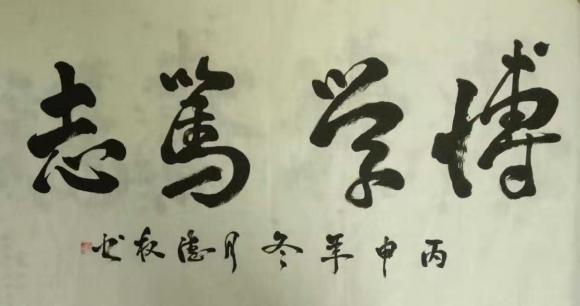 博学篤志
丙申年冬月德权书